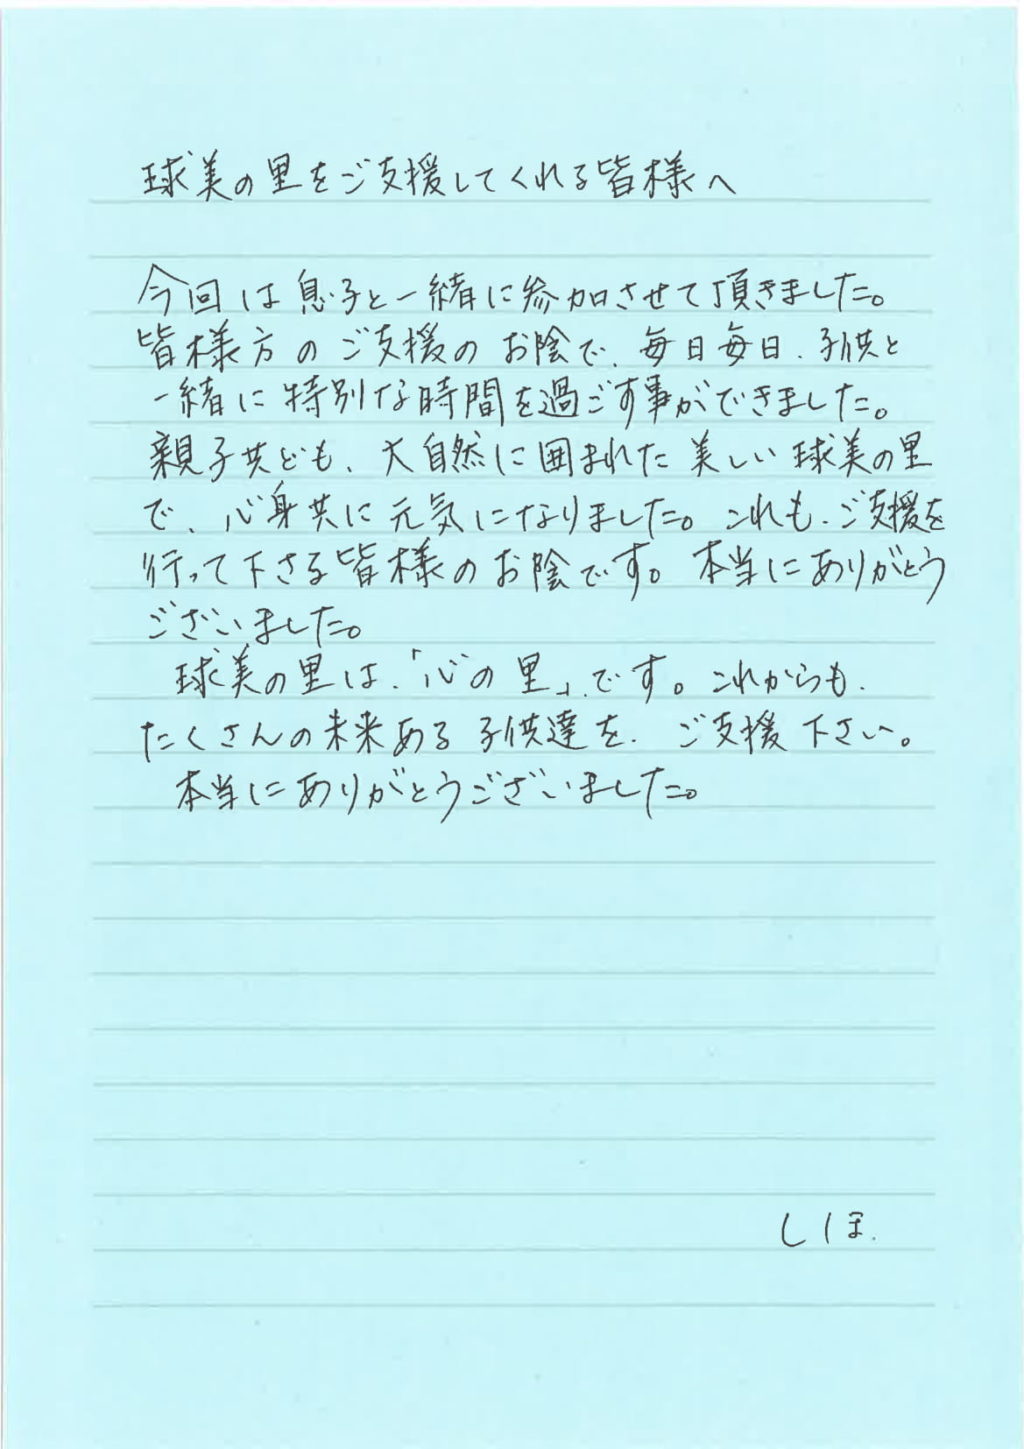 球美の里をご支援してくれる皆様へ
今回は息子と一緒に参加させて頂きました。
皆様方のご支援のお陰で、毎日毎日、子供と
一緒に特別な時間を過ごす事ができました。
親子共ども、大自然に囲まれた美しい球美の里
で、心身共に元気になりました。これも、ご支援を
行って下さる皆様のお陰です。本当にありがとう
ございました。
球美の里は、「心の里」です。これからも、
たくさんの未来ある子供達を、ご支援下さい。
本当にありがとうございました。
しほ.